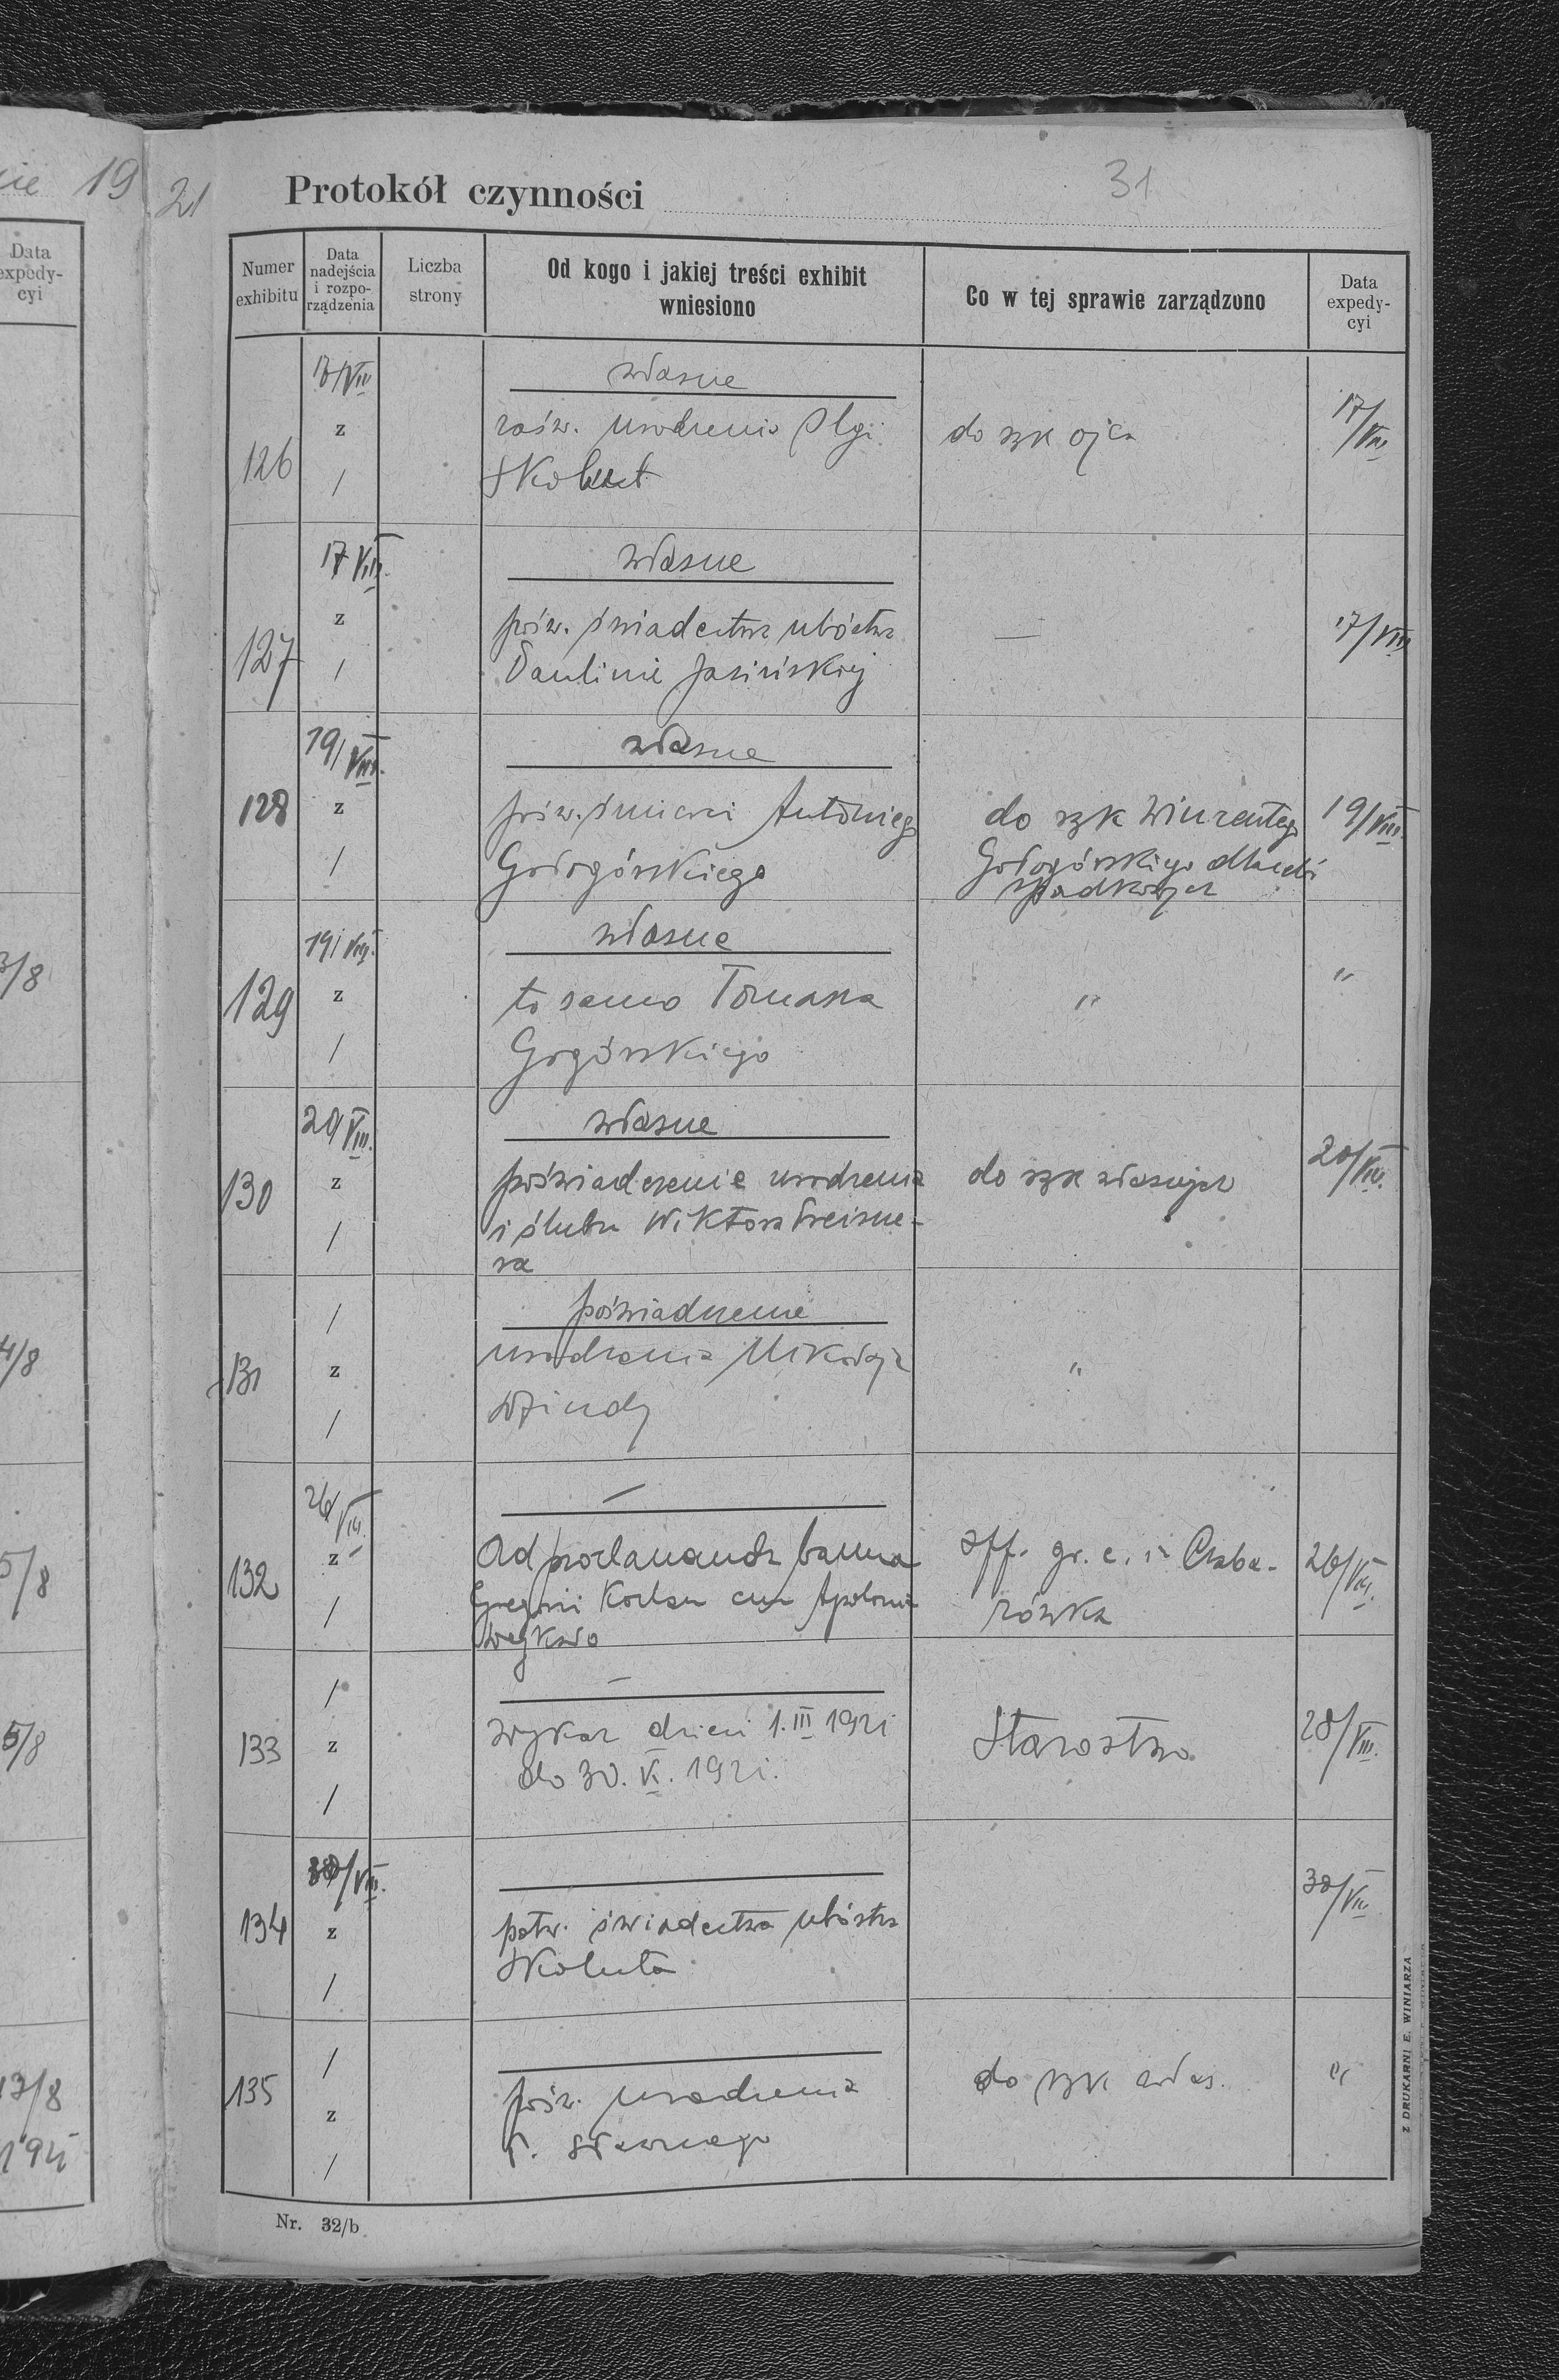 19
21
Protokół czynności
31
Data
expedy-
cyi
Numer
exhibitu
Data
nadejścia
i rozpo-
rządzenia
Liczba
strony
Od kogo i jakiej treści exhibit
wniesiono
Co w tej sprawie zarządzono
Data
expedy-
cyi
własne
126
z
urodzenia Olgi
do rąk ojca
17/VIII
17 VIII.
własne
127
z
pośw. świadectwa ubóstwa
Paulinie Jasińskiej
—
17/VIII
19/VIII.
własne
128
z
pośw. śmierci Antoniego
Gołogórskiego
do rąk Wincentego
Gołogórskiego
19/VIII.
19/VIII.
własne
129
z
to samo Tomasza
Gogórskiego
"
"
20/VIII.
własne
130
z
poświadczenie urodzenia
i ślubu Wiktora
ra
do rąk własnych
20/VIII.
poświadczenie
131
z
urodzenia Mikołaja
"
26/VIII.
—
132
z
Ad proclamanda banna
cum Apolonia
off. gr. c. in Czaba-
rówka
26/VIII.
—
133
z
wykaz dzieci 1. III 1921
do 30. V. 1921.
Starostwo
28/VIII.
30/VIII.
134
z
potw. świadectwa ubóstwa
Skoluta
30/VIII.
135
z
pośw. urodzenia
do rąk włas.
"
3/8
4/8
5/8
5/8
13/8
Nr. 32/b
Z DRUKARNI E. WINIARZA